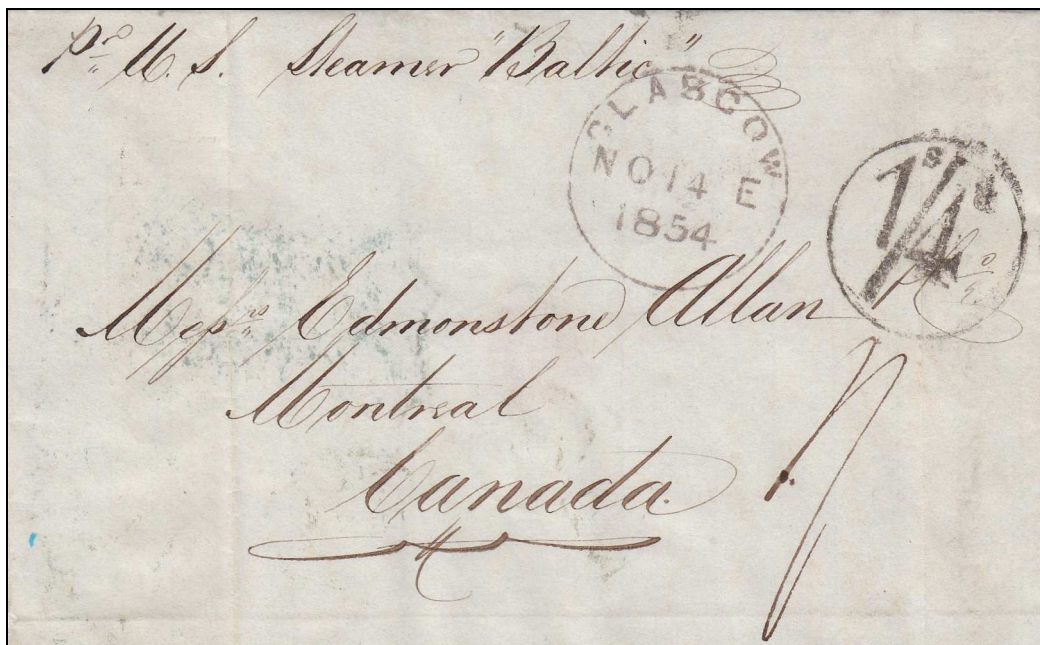 Pr. U. S. Steamer "Baltic"
GLASGOW
NO 14 E
1854
1s/4d
Messrs Edmonstone Allan & Co
Montreal
Canada.